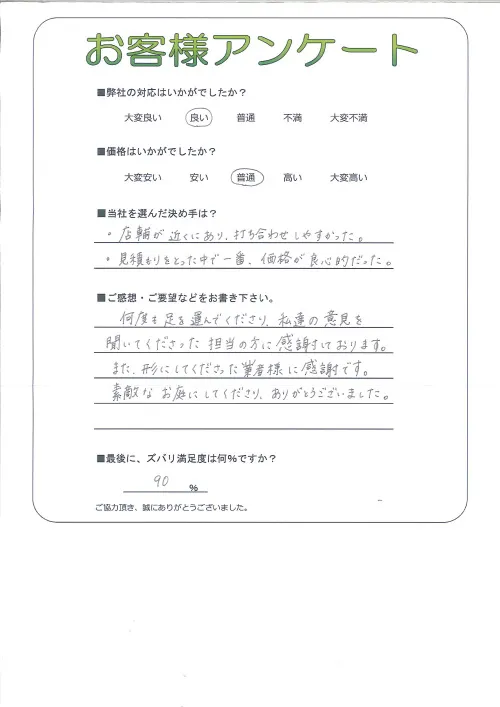 お客様アンケート
■弊社の対応はいかがでしたか？
大変良い 良い 普通 不満 大変不満
■価格はいかがでしたか？
大変安い 安い 普通 高い 大変高い
■当社を選んだ決め手は？
・店輔が近くにあり、打ち合わせしやすかった。
・見積もりをとった中で一番、価格が良心的だった。
■ご感想・ご要望などをお書き下さい。
何度も足を運んでくださり、私達の意見を
聞いてくださった担当の方に感謝しております。
また、形にしてくださった業者様に感謝です。
素敵なお庭にしてくださり、ありがとうございました。
■最後に、ズバリ満足度は何%ですか？
90 %
ご協力頂き、誠にありがとうございました。